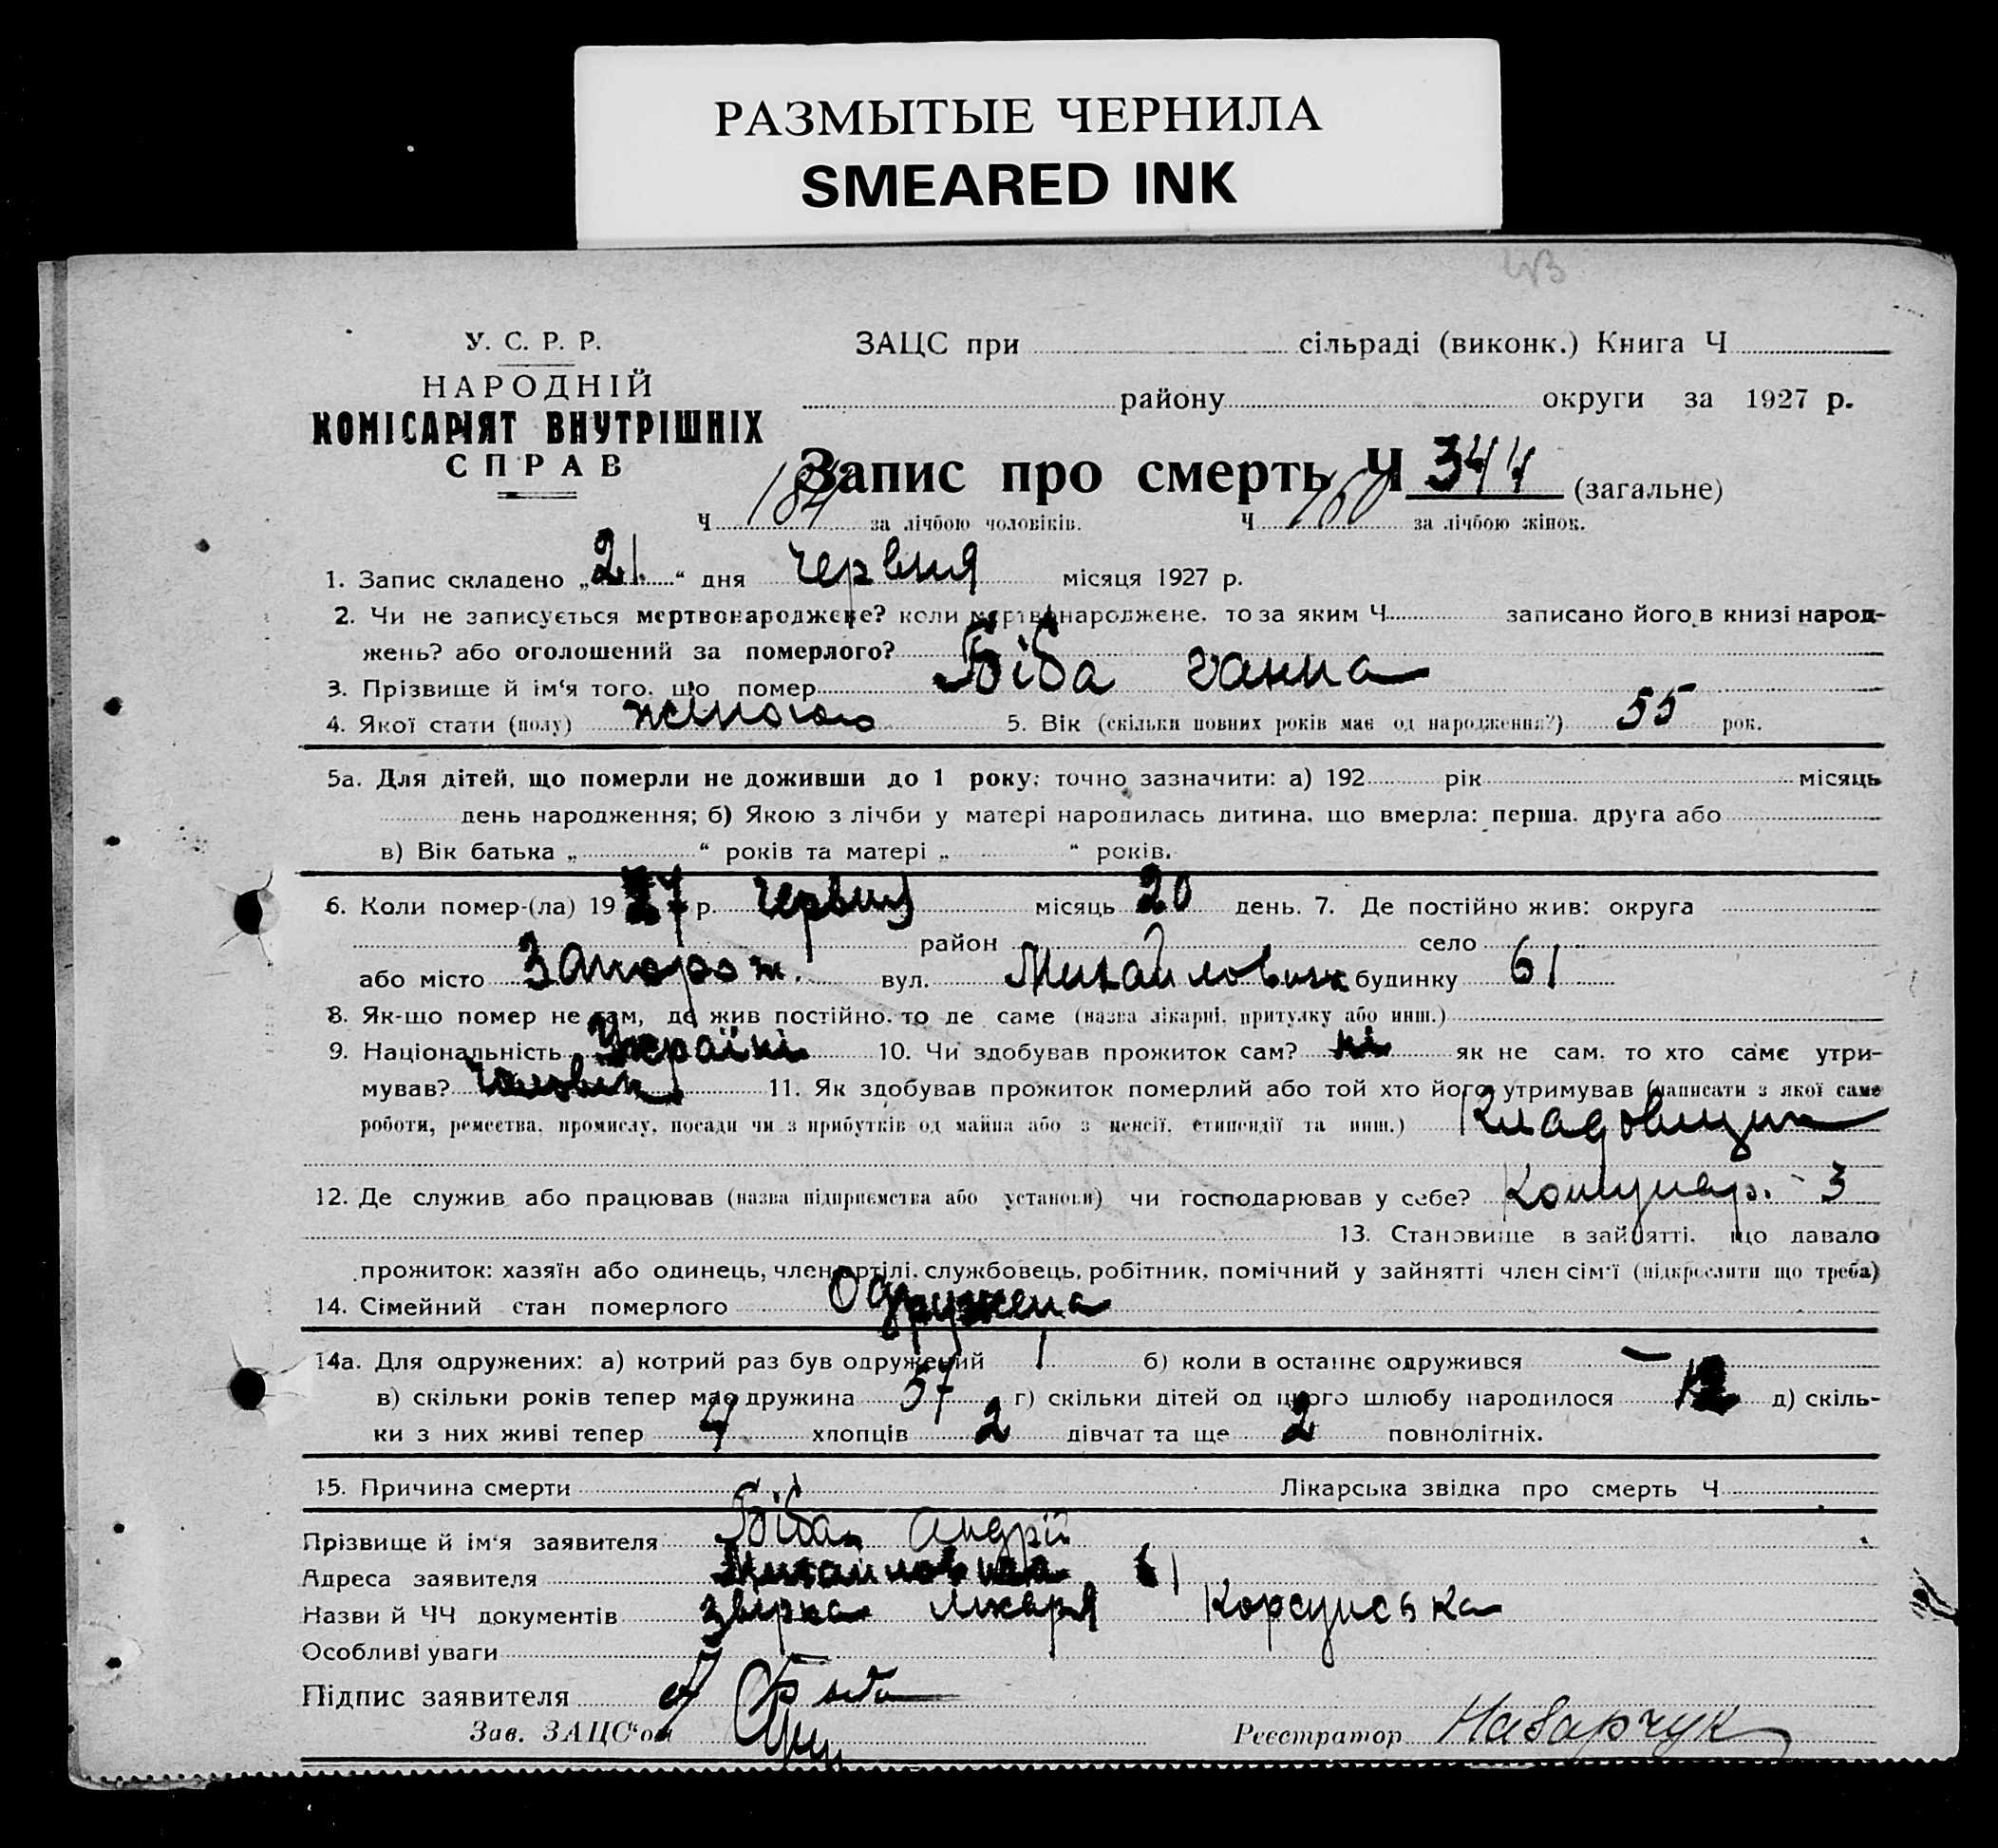 РАЗМЫТЫЕ ЧЕРНИЛА
SMEARED INK
У. С. Р. Р.
НАРОДНІЙ
КОМІСАРІЯТ ВНУТРІШНІХ
СПРАВ
ЗАЦС при сільраді (виконк.) Книга Ч
району округи за 1927 р.
Запис про смерть Ч 344 (загальне)
Ч 184 за лічбою чоловіків. Ч 160 за лічбою жінок.
1. Запис складено „21“ дня червня місяця 1927 р.
2. Чи не записується мертвонароджене? коли мертвонароджене, то за яким Ч записано його в книзі народ-
жень? або оголошений за померлого?
3. Прізвище й ім‘я того, що помер Біба Ганна
4. Якої стати (полу) жіночою 5. Вік (скільки повних років має од народження?) 55 рок.
5а. Для дітей, що померли не доживши до 1 року: точно зазначити: а) 192 рік місяць
день народження; б) Якою з лічби у матері народилась дитина, що вмерла: перша, друга або
в) Вік батька „ “ років та матері „ “ років.
6. Коли помер-(ла) 1927 р. червня місяць 20 день. 7. Де постійно жив: округа
район село
або місто Запорож. вул. Михайловськ будинку 61
8. Як-що помер не там, де жив постійно, то де саме (назва лікарні, притулку або инш.)
9. Національність Україн 10. Чи здобував прожиток сам? ні як не сам, то хто саме утри-
мував? Чоловік 11. Як здобував прожиток померлий або той хто його утримував (написати з якої саме
роботи, ремества, промислу, посади чи з прибутків од майна або з пенсії, стипендії та инш.) Кладовщик
12. Де служив або працював (назва підприємства або установи) чи господарював у себе? Комунар. 3
13. Становище в зайнятті, що давало
прожиток: хазяїн або одинець, член артілі, службовець, робітник, помічний у зайнятті член сім‘ї (підкреслити що треба)
14. Сімейний стан померлого Одружена
14а. Для одружених: а) котрий раз був одружений 1 б) коли в останнє одружився —
в) скільки років тепер має дружина 57 г) скільки дітей од цього шлюбу народилося 12 д) скіль-
ки з них живі тепер 4 хлопців 2 дівчат та ще 2 повнолітніх.
15. Причина смерти Лікарська звідка про смерть Ч
Прізвище й ім‘я заявителя Біба Андрій
Адреса заявителя Михайловська 61
Назви й ЧЧ документів лікаря Корсунська
Особливі уваги
Підпис заявителя
Зав. ЗАЦС‘ом Реєстратор Назарчук